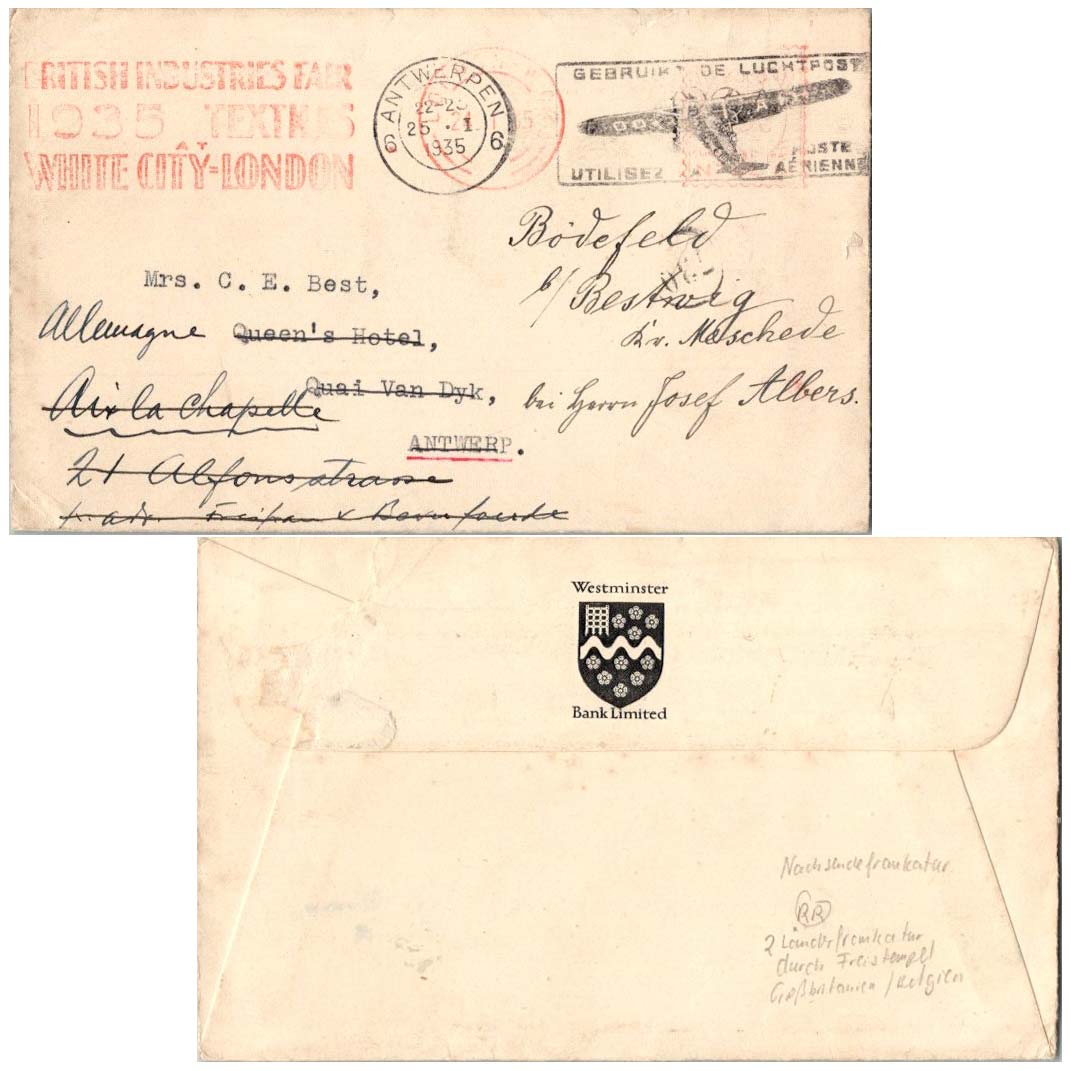 BRITISH INDUSTRIES FAIR
1935 TEXTILES
AT
WHITE CITY-LONDON
ANTWERPEN
22-23
25 · I
1935
6 6
GEBRUIKT DE LUCHTPOST
UTILISEZ LA POSTE
AÉRIENNE
Bödefeld
b/Bestwig
Kr. Meschede
bei Herrn Josef Albers.
Mrs. C. E. Best,
Allemagne Queen's Hotel,
Quai Van Dyk,
Aix la Chapelle
ANTWERP.
21 Alfonsstrasse
Westminster
Bank Limited
Nachsendefrankatur
RR
2 Länderfrankatur
durch Freistempel
Großbritanien / Belgien